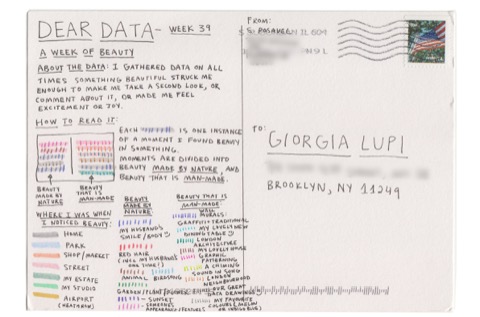 DEAR DATA - WEEK 39
A WEEK OF BEAUTY
ABOUT THE DATA: I GATHERED DATA ON ALL
TIMES SOMETHING BEAUTIFUL STRUCK ME
ENOUGH TO MAKE ME TAKE A SECOND LOOK, OR
COMMENT ABOUT IT, OR MADE ME FEEL
EXCITEMENT OR JOY.
HOW TO READ IT:
EACH IS ONE INSTANCE
OF A MOMENT I FOUND BEAUTY
IN SOMETHING.
MOMENTS ARE DIVIDED INTO
BEAUTY MADE BY NATURE, AND
BEAUTY THAT IS MAN-MADE.
BEAUTY
MADE BY
NATURE
BEAUTY
THAT IS
MAN-MADE
WHERE I WAS WHEN
I NOTICED BEAUTY:
HOME
PARK
SHOP/MARKET
STREET
MY ESTATE
MY STUDIO
AIRPORT
(HEATHROW)
BEAUTY
MADE BY
NATURE:
MY HUSBAND'S
SMILE/BODY
RED HAIR
ANIMAL
BIRDSONG
SUNSET
BEAUTY THAT IS
MAN-MADE:
MURALS:
GRAFFITI + TRADITIONAL
MY LOVELY NEW
DINING TABLE
LONDON
ARCHITECTURE
MY LOVELY HOUSE
GRAPHIC
PATTERNING
SOUND IN SONG
LONDON
NEIGHBORHOOD
OUR GREAT
DATA DRAWINGS
MY FAVORITE
FROM:
S. POSAVEC
TO:
GIORGIA LUPI
BROOKLYN, NY 11249